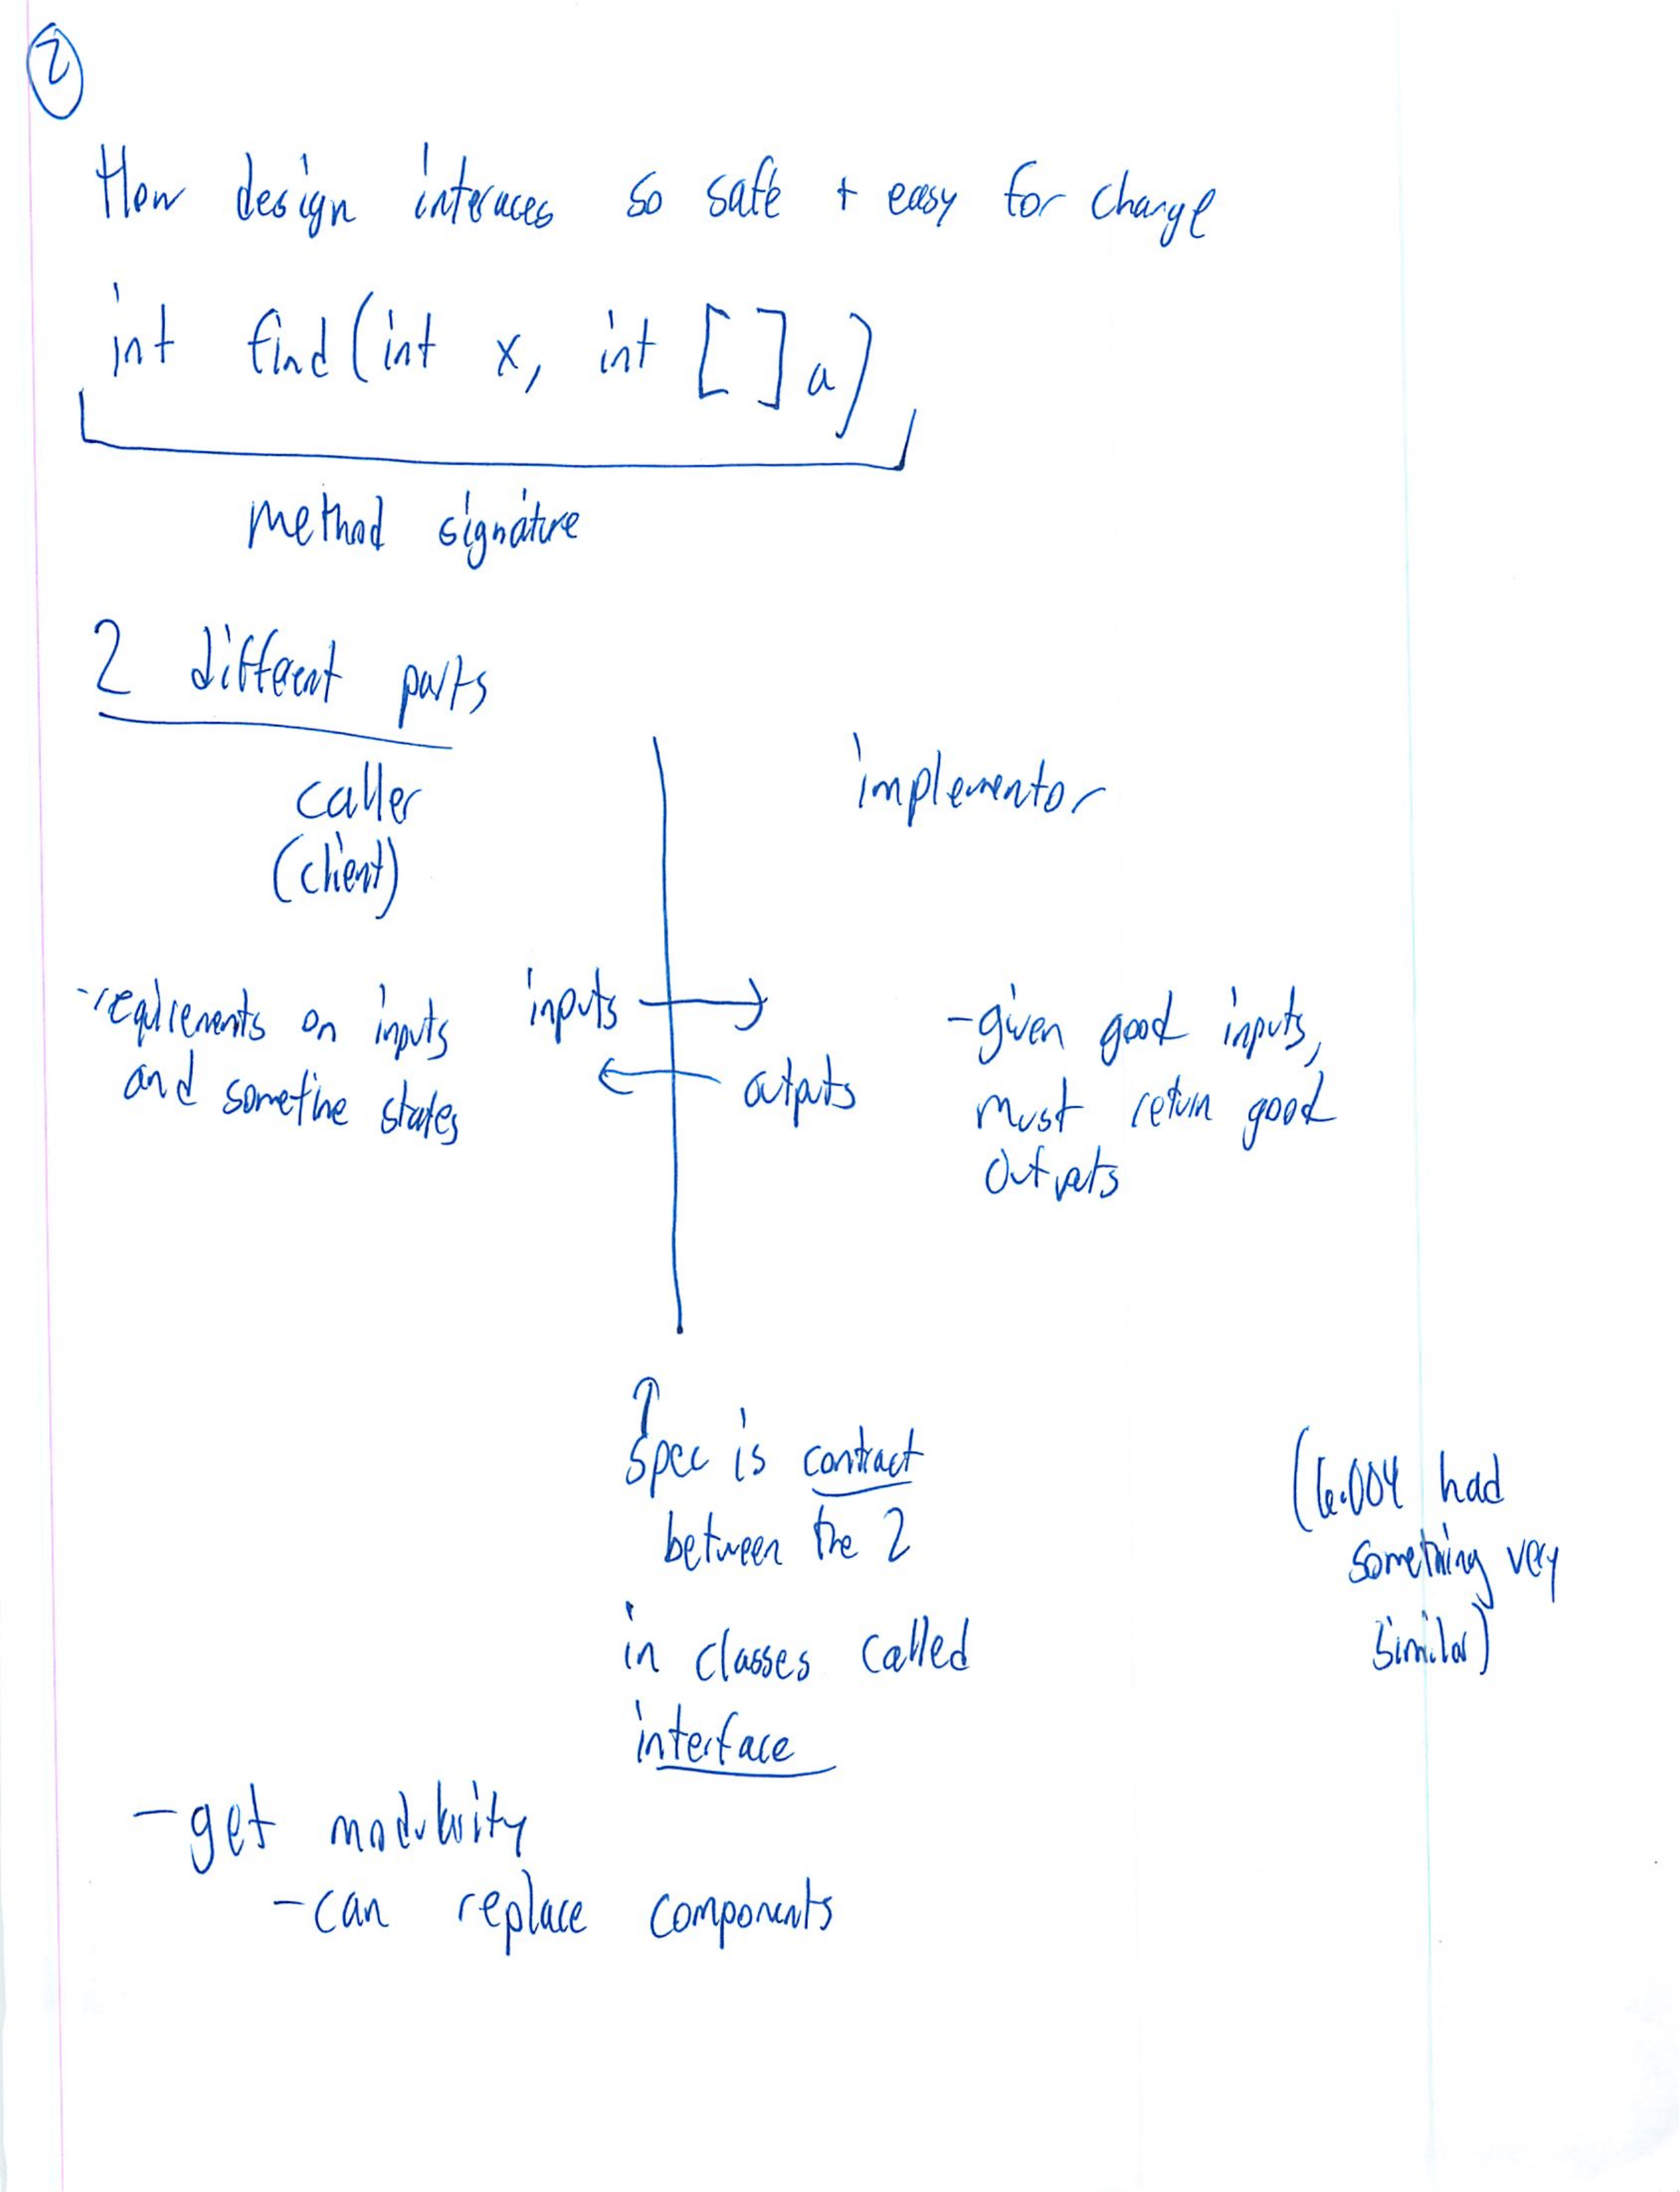 2
How design interaces so safe + easy for change
int find(int x, int [] a)
method signature
2 different parts
caller
(client)
implementor
-requirements on inputs
and sometime states
inputs
outputs
-given good inputs,
must return good
outputs
Spec is contract
between the 2
in classes called
interface
(6.004 had
something very
similar)
-get modularity
-can replace components